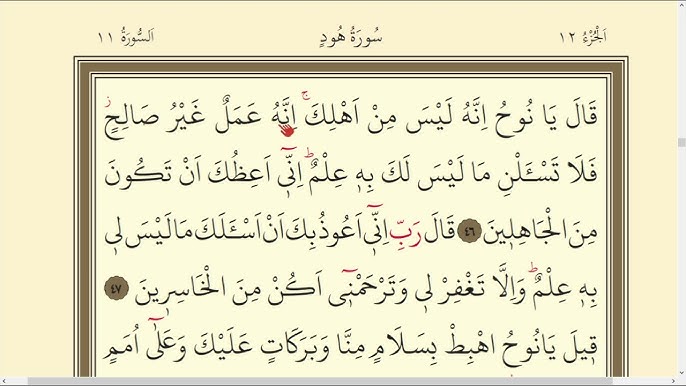 اَلْجُزْءُ ١٢ سُورَةُ هُودٍ اَلسُّورَةُ ١١
قَالَ يَا نُوحُ اِنَّهُ لَيْسَ مِنْ اَهْلِكَۚ اِنَّهُ عَمَلٌ غَيْرُ صَالِحٍۘ
فَلَا تَسْـَٔلْنِ مَا لَيْسَ لَكَ بِهٖ عِلْمٌۜ اِنّٖٓي اَعِظُكَ اَنْ تَكُونَ
مِنَ الْجَاهِلٖينَ ٤٦ قَالَ رَبِّ اِنّٖٓي اَعُوذُ بِكَ اَنْ اَسْـَٔلَكَ مَا لَيْسَ لٖي
بِهٖ عِلْمٌۜ وَاِلَّا تَغْفِرْ لٖي وَتَرْحَمْنٖٓي اَكُنْ مِنَ الْخَاسِرٖينَ ٤٧
قٖيلَ يَانُوحُ اهْبِطْ بِسَلَامٍ مِنَّا وَبَرَكَاتٍ عَلَيْكَ وَعَلٰٓى اُمَمٍ